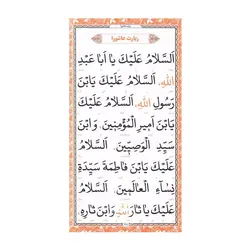 زیارت عاشورا
اَلسَّلَامُ عَلَيْكَ يَا اَبَا عَبْدِ
اللّٰهِ، اَلسَّلَامُ عَلَيْكَ يَابْنَ
رَسُولِ اللّٰهِ، اَلسَّلَامُ عَلَيْكَ
يَابْنَ اَمِيرِ الْمُؤْمِنِينَ، وَابْنَ
سَيِّدِ الْوَصِيِّينَ، اَلسَّلَامُ
عَلَيْكَ يَابْنَ فَاطِمَةَ سَيِّدَةِ
نِسَاءِ الْعَالَمِينَ، اَلسَّلَامُ
عَلَيْكَ يَا ثَارَ اللّٰهِ وَابْنَ ثَارِهِ،